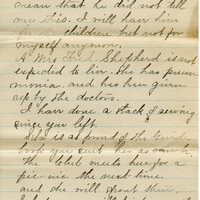 mean that he did not tell
me this. I will have him
for the children but not for
myself anymore.
A Mrs Fred. Shepherd is not
expected to live. She has pneu
monia and has been given
up by the doctors.
I have done a stack of sewing
since you left.
is as proud of the
book you sent her as can be
The Club meets here for a
pic-nic the next time.
and she will